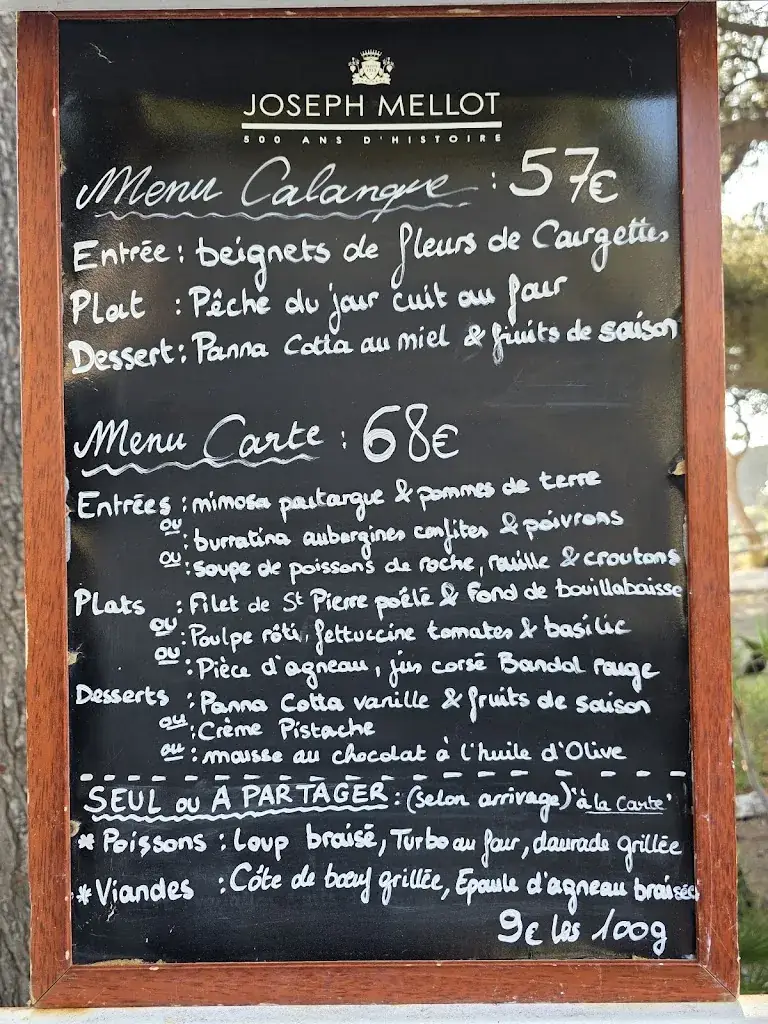 JOSEPH MELLOT
500 ANS D'HISTOIRE
Menu Calanque : 57€
Entrée : beignets de fleurs de Courgettes
Plat : Pêche du jour cuit au four
Dessert : Panna Cotta au miel & fruits de saison
Menu Carte : 68€
Entrées : mimosa poutargue & pommes de terre
ou : burratina aubergines confites & poivrons
ou : soupe de poissons de roche, rouille & croutons
Plats : Filet de St Pierre poêlé & Fond de bouillabaisse
ou : Poulpe rôti, fettuccine tomates & basilic
ou : Pièce d'agneau, jus corsé Bandol rouge
Desserts : Panna Cotta vanille & fruits de saison
ou : Crème Pistache
ou : mousse au chocolat à l'huile d'Olive
SEUL ou A PARTAGER : (selon arrivage) "à la Carte"
* Poissons : Loup braisé, Turbo au four, daurade grillée
* Viandes : Côte de bœuf grillée, Epaule d'agneau braisée
9€ les 100g